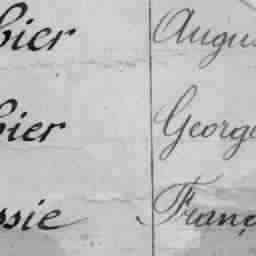 bier Augu
bier Georg
ssie Franç